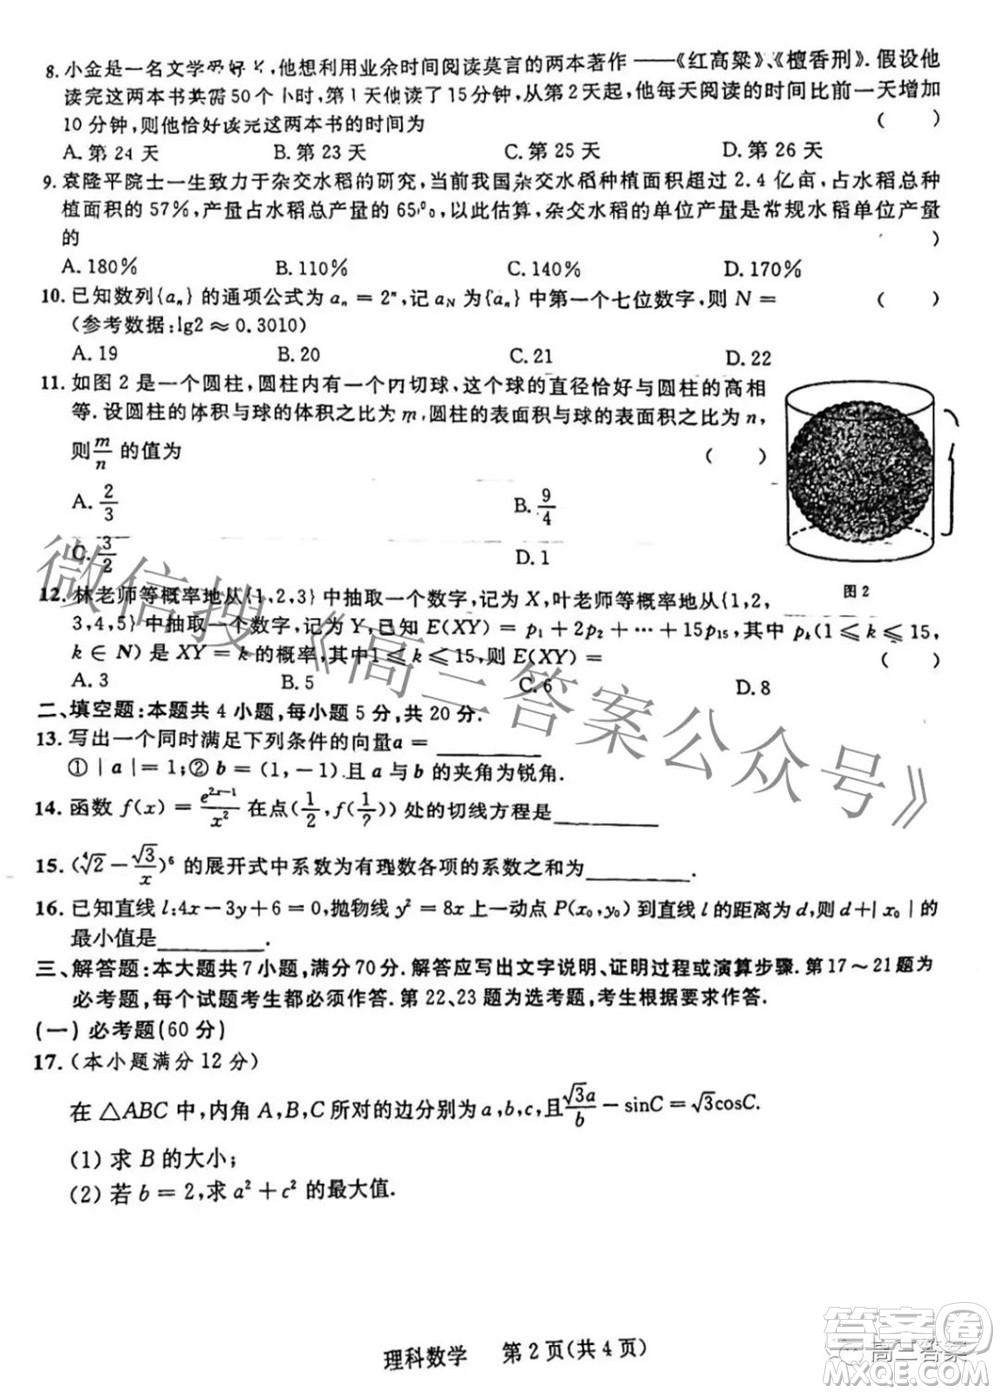 8. 小金是一名文学爱好者,他想利用业余时间阅读莫言的两本著作——《红高粱》、《檀香刑》. 假设他
读完这两本书共需50个小时,第1天他读了15分钟,从第2天起,他每天阅读的时间比前一天增加
10分钟,则他恰好读完这两本书的时间为 ( )
A. 第 24 天 B. 第 23 天 C. 第 25 天 D. 第 26 天
9. 袁隆平院士一生致力于杂交水稻的研究,当前我国杂交水稻种植面积超过 2.4 亿亩,占水稻总种
植面积的 57%,产量占水稻总产量的 65%,以此估算,杂交水稻的单位产量是常规水稻单位产量
的 )
A. 180% B. 110% C. 140% D. 170%
10. 已知数列{aₙ}的通项公式为 aₙ = 2ⁿ,记 a_N 为{aₙ}中第一个七位数字,则 N = ( )
(参考数据:lg2 ≈ 0.3010)
A. 19 B. 20 C. 21 D. 22
11. 如图 2 是一个圆柱,圆柱内有一个内切球,这个球的直径恰好与圆柱的高相
等. 设圆柱的体积与球的体积之比为 m,圆柱的表面积与球的表面积之比为 n,
则 m/n 的值为 ( )
A. 2/3 B. 9/4
C. 3/2 D. 1
图 2
12. 林老师等概率地从{1,2,3}中抽取一个数字,记为 X,叶老师等概率地从{1,2,
3,4,5}中抽取一个数字,记为 Y,已知 E(XY) = p₁ + 2p₂ + ··· + 15p₁₅,其中 pₖ(1 ≤ k ≤ 15,
k ∈ N)是 XY = k 的概率,其中1 ≤ k ≤ 15,则 E(XY) = ( )
A. 3 B. 5 C. 6 D. 8
二、填空题:本题共 4 小题,每小题 5 分,共 20 分.
13. 写出一个同时满足下列条件的向量a = ________
①|a|=1;②b=(1,-1).且 a 与 b 的夹角为锐角.
14. 函数 f(x) = e^(2x-1)/x² 在点(1/2, f(1/2))处的切线方程是________
15. (⁴√2 - √3/x)⁶ 的展开式中系数为有理数各项的系数之和为________.
16. 已知直线 l:4x-3y+6=0,抛物线 y²=8x 上一动点 P(x₀,y₀)到直线 l 的距离为 d,则 d+|x₀|的
最小值是________.
三、解答题:本大题共 7 小题,满分 70 分. 解答应写出文字说明、证明过程或演算步骤. 第 17～21 题为
必考题,每个试题考生都必须作答. 第 22、23 题为选考题,考生根据要求作答.
(一) 必考题(60 分)
17. (本小题满分 12 分)
在 △ABC 中,内角 A,B,C 所对的边分别为 a,b,c,且 √3a/b - sinC = √3cosC.
(1) 求 B 的大小;
(2) 若 b = 2,求 a² + c² 的最大值.
理科数学 第 2 页(共 4 页)
微信搜《高三答案公众号》
答案圈
高三答案
MXQE.COM